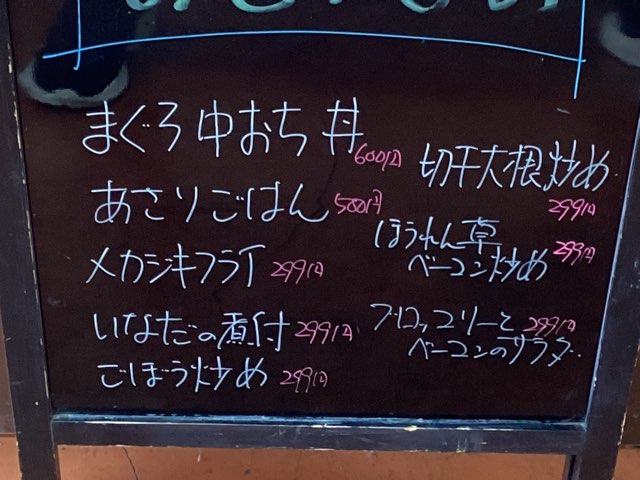 まぐろ中おち丼 600円
あさりごはん 500円
メカジキフライ 299円
いなだの煮付 299円
ごぼう炒め 299円
切干大根炒め
299円
ほうれん草
ベーコン炒め 299円
ブロッコリーと 299円
ベーコンのサラダ